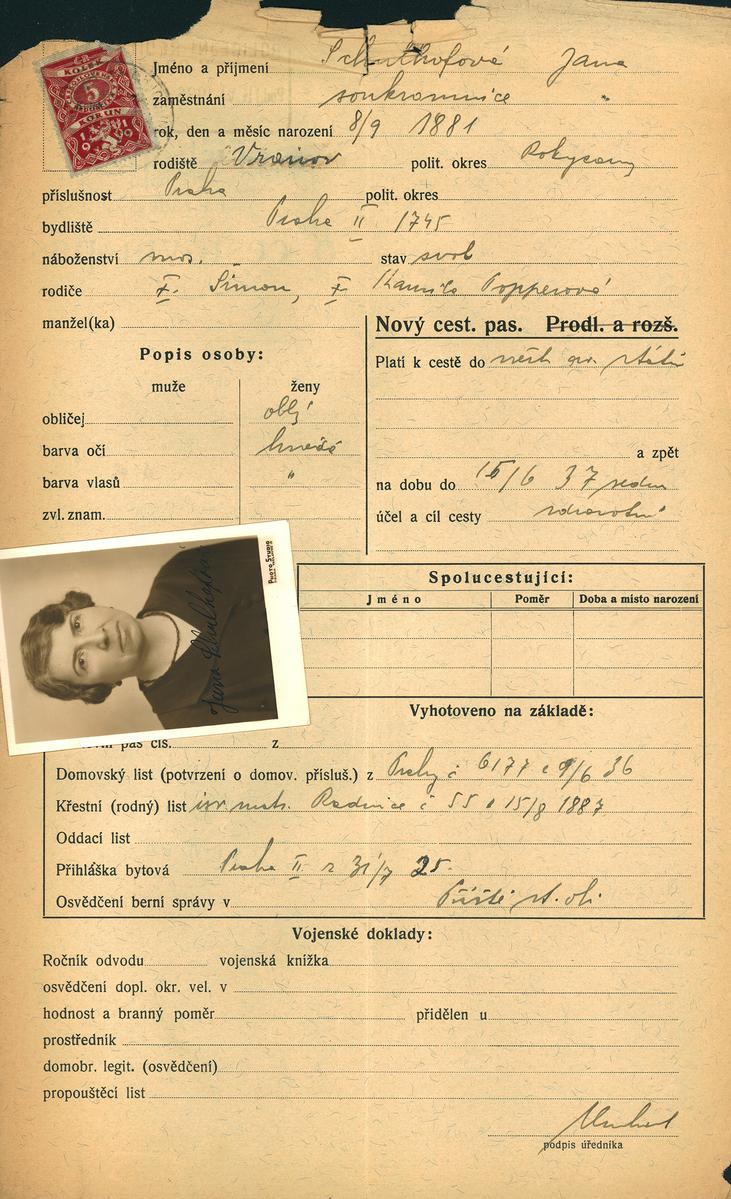 KOLEK
5
KORUN
1919
Jméno a příjmení Schulhofová Jana
zaměstnání soukromnice "
rok, den a měsíc narození 8/9 1881
rodiště Vranov polit. okres Rokycany
příslušnost Praha polit. okres
bydliště Praha II 1745
náboženství mos. stav svob
rodiče Simon, Kamila Popperová
manžel(ka)
Nový cest. pas. Prodl. a rozš.
Popis osoby:
muže ženy
obličej oblý
barva očí hnědé
barva vlasů "
zvl. znam.
Platí k cestě do všech evr. států
a zpět
na dobu do 15/6 37
účel a cíl cesty zdravotní
PHOTO STUDIO
Jana Schulhofová
Spolucestující:
Jméno Poměr Doba a místo narození
Vyhotoveno na základě:
pas čís. z
Domovský list (potvrzení o domov. přísluš.) z Prahy č 6177 z 9/6 36
Křestní (rodný) list isr. mat. Radnice č 55 z 15/8 1887
Oddací list
Přihláška bytová Praha II z 31/7 25.
Osvědčení berní správy v
Vojenské doklady:
Ročník odvodu vojenská knížka
osvědčení dopl. okr. vel. v
hodnost a branný poměr přidělen u
prostředník
domobr. legit. (osvědčení)
propouštěcí list
podpis úředníka